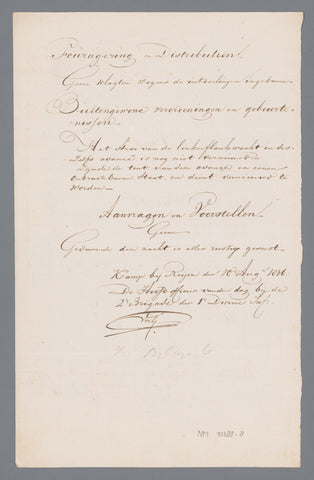 Fouragering en Distributien.
Geene klagten wegens de uitdeelingen ingekomen.
Buitengewone voorzieningen en gebeurte-
nissen.
Het stroo van de linkerflankwacht en des-
zelfs avancé is nog niet vernieuwd
zijnde de tent van den avancé in eenen
onbruikbaren staat, en dient vernieuwd te
worden.
Aanvragen en Voorstellen.
Geene
Gedurende den nacht is alles rustig geweest.
Kamp bij Reijen den 10 Aug. 1836
De Hoofdofficier van den dag bij de
2e Brigade der 1e Divisie Inf.
NM 10488-8